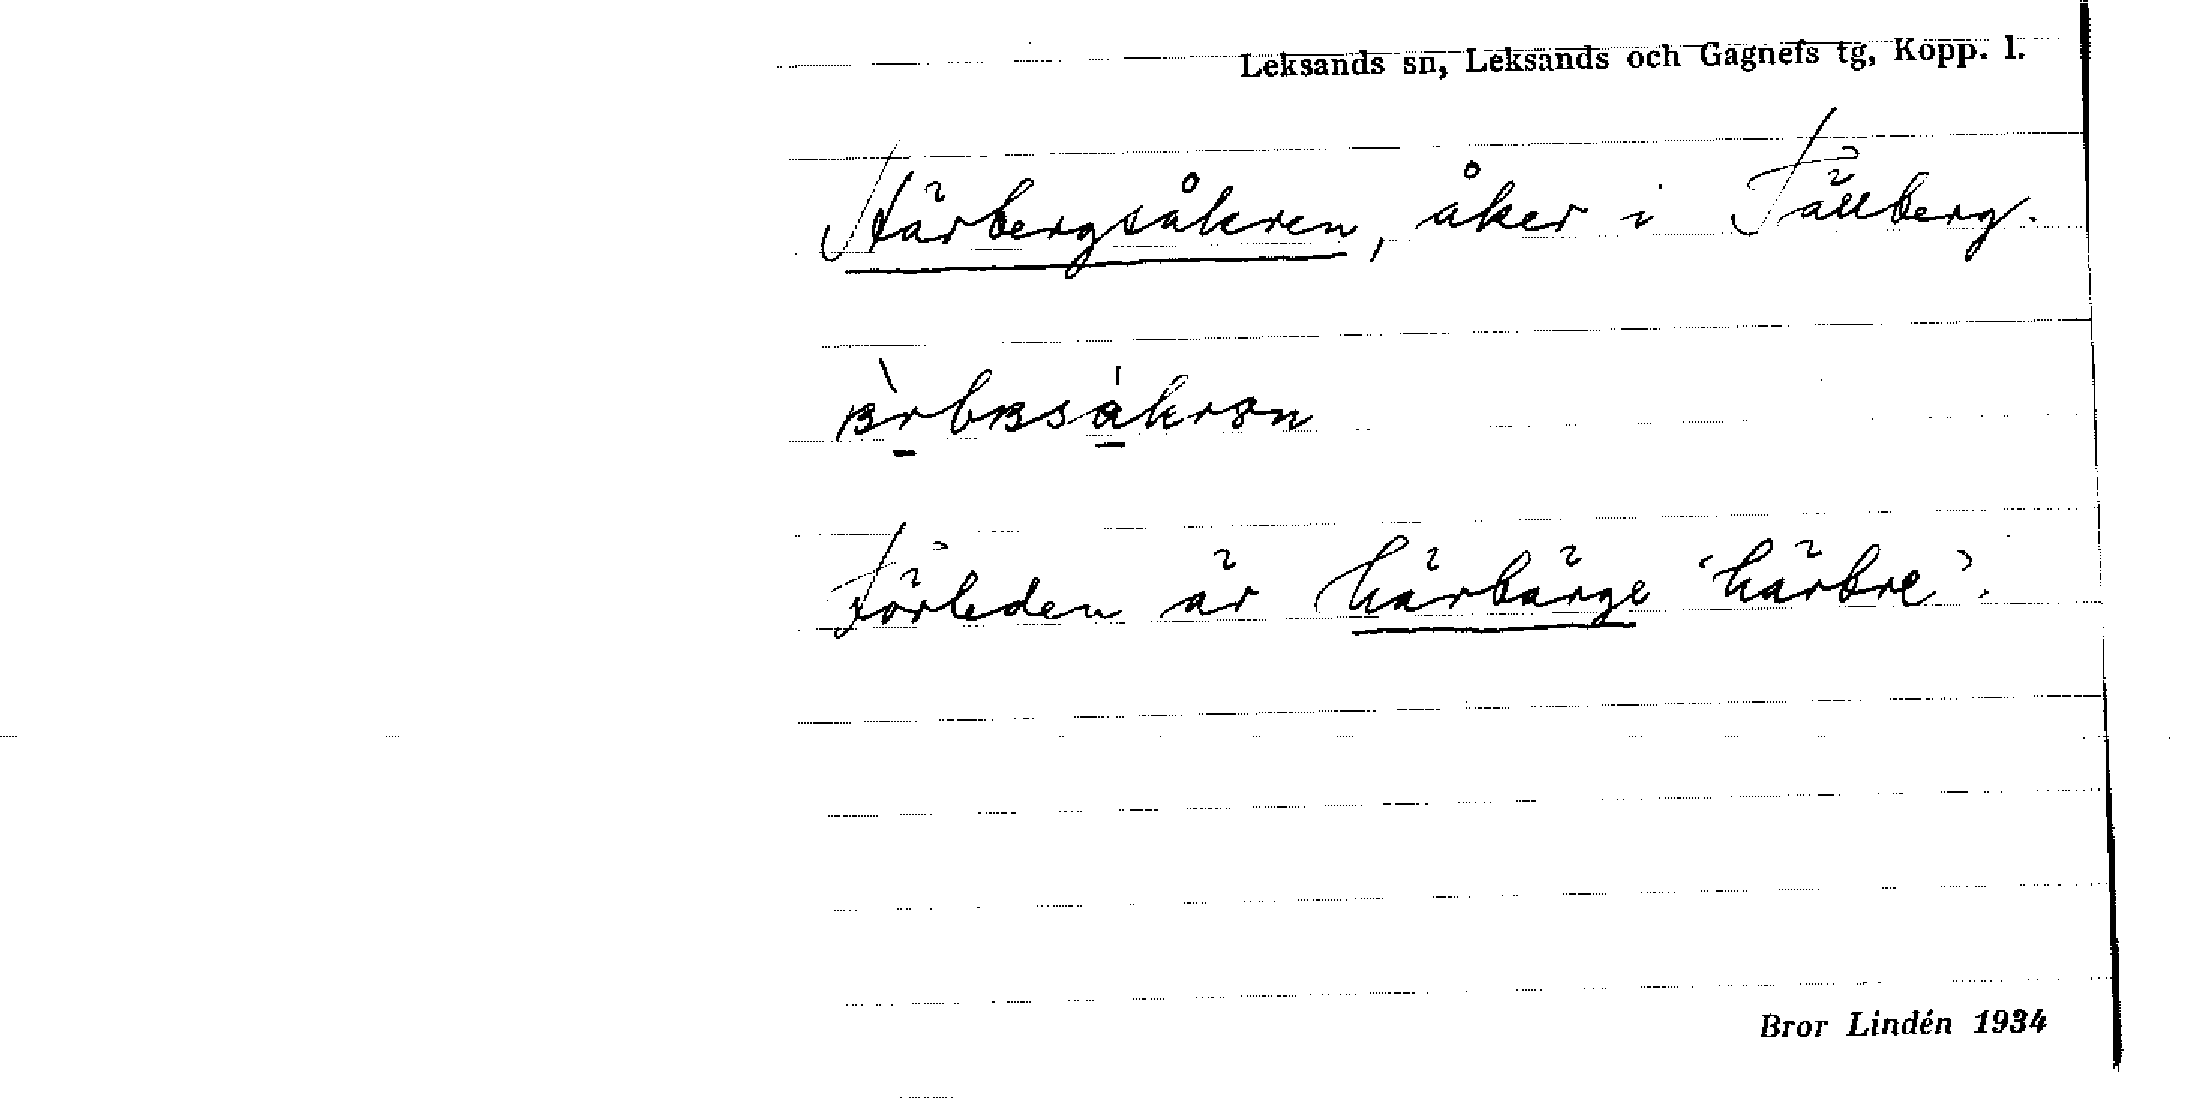 Leksands sn, Leksands och Gagnefs tg, Kopp. l.
Härbergsåkren, åker i Tällberg.
Förleden är härbärge 'härbre'.
Bror Lindén 1934